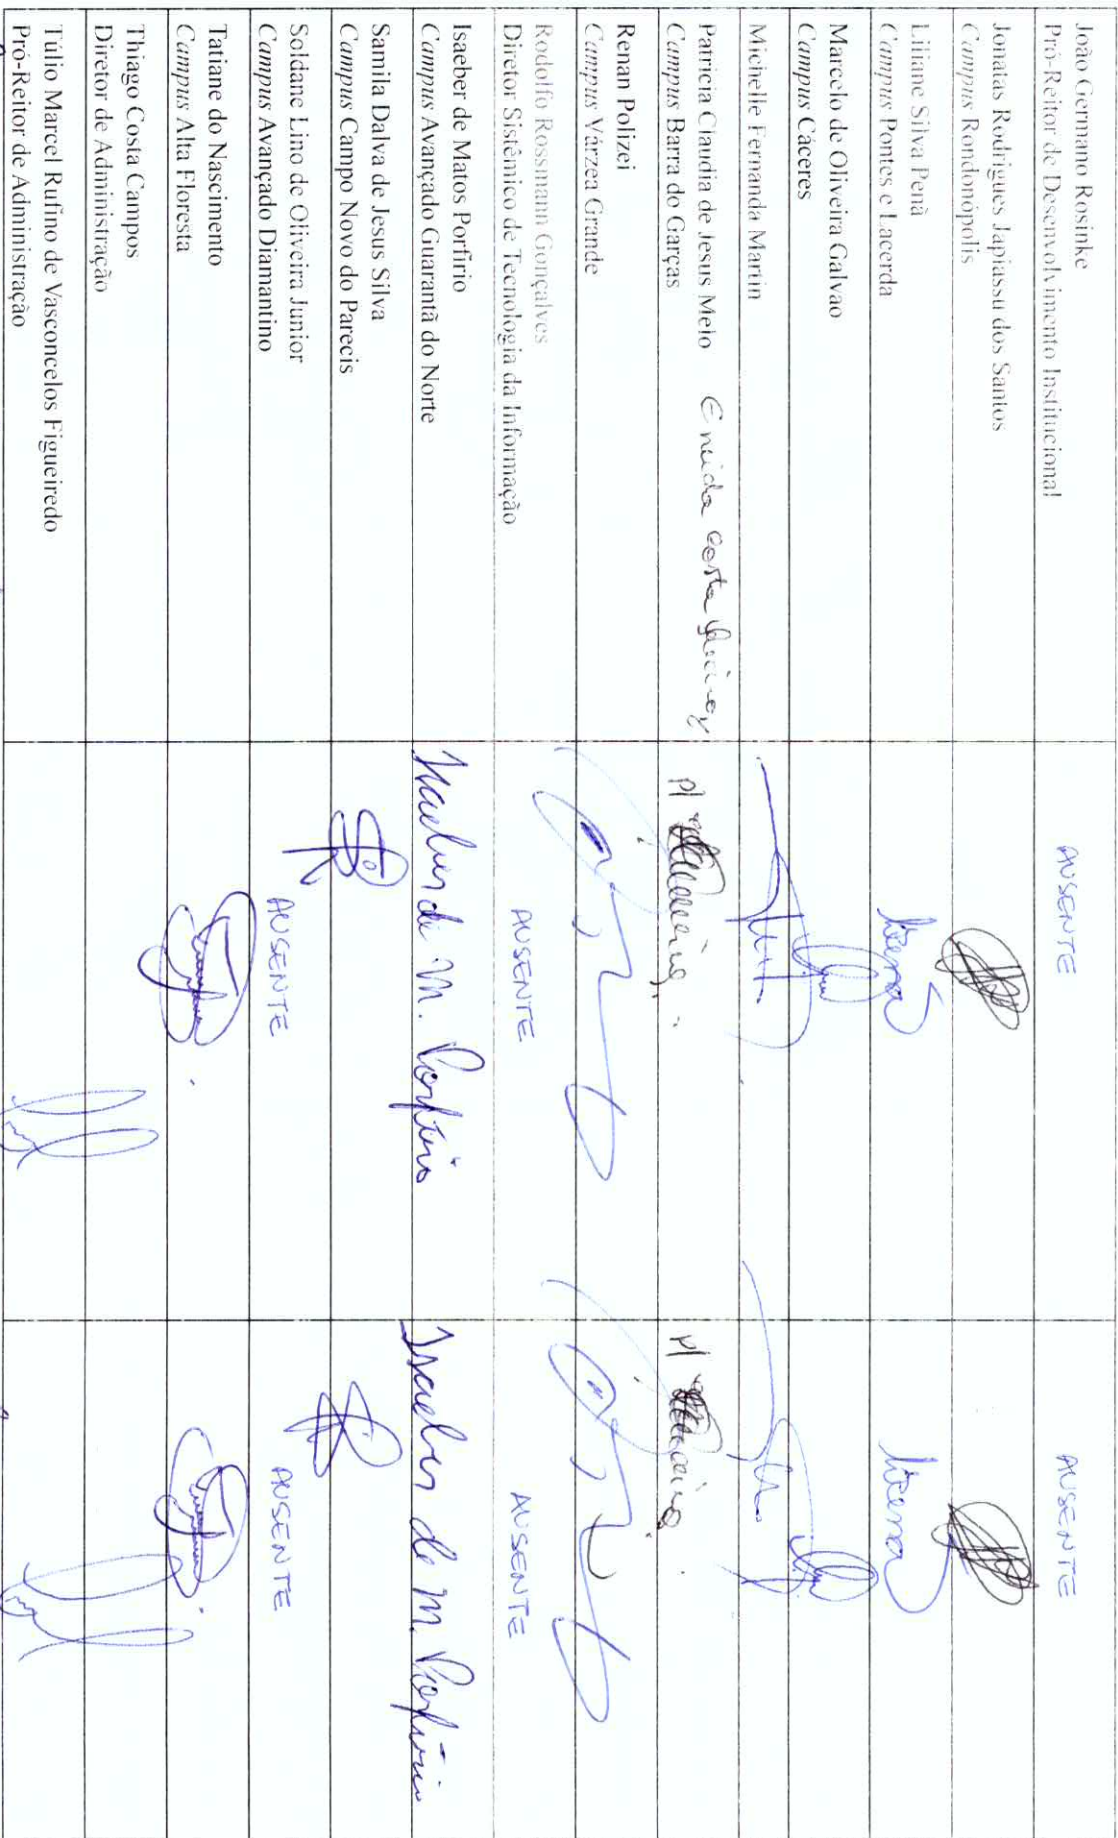 João Germano Rosinke
Pró-Reitor de Desenvolvimento Institucional
AUSENTE
AUSENTE
Jonatas Rodrigues Japiassu dos Santos
Campus Rondonópolis
Liliane Silva Penã
Campus Pontes e Lacerda
Marcelo de Oliveira Galvao
Campus Cáceres
Michelle Fernanda Martin
Patricia Claudia de Jesus Melo
Campus Barra do Garças
p/
p/
Renan Polizei
Campus Várzea Grande
Rodolfo Rossmann Gonçalves
Diretor Sistêmico de Tecnologia da Informação
AUSENTE
AUSENTE
Isaeber de Matos Porfirio
Campus Avançado Guarantã do Norte
Isaeber de M. Porfirio
Isaeber de M. Porfirio
Samila Dalva de Jesus Silva
Campus Campo Novo do Parecis
Soldane Lino de Oliveira Junior
Campus Avançado Diamantino
AUSENTE
AUSENTE
Tatiane do Nascimento
Campus Alta Floresta
Thiago Costa Campos
Diretor de Administração
Túlio Marcel Rufino de Vasconcelos Figueiredo
Pró-Reitor de Administração